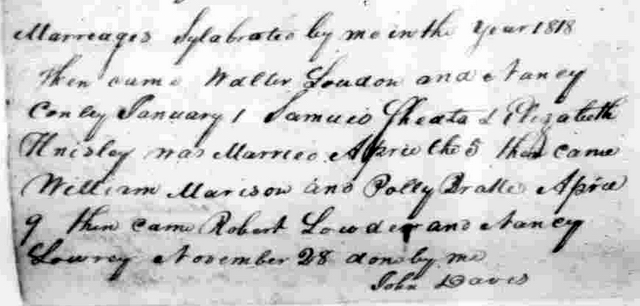 Marreages Sylabrated by me in the Year 1818
then came Walter Loudon and Nancy
Conley January 1 Samuel Sheats & Elizabeth
Knisley was Married Aprie the 5 then came
William Marison and Polly Aprie
9 then came Robert Lowder and Nancy
Lowrey November 28 done by me
John Davis